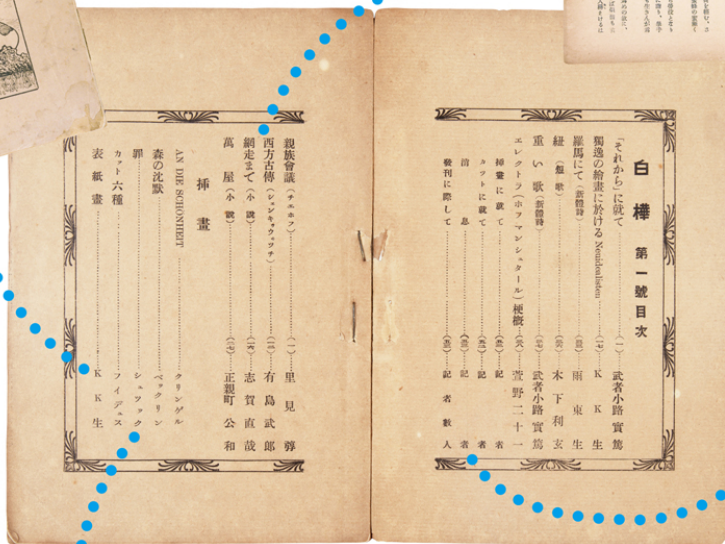 白樺 第一號目次
「それから」に就て (一) 武者小路實篤
獨逸の繪畫に於ける Neuidealisten K K 生
羅馬にて (新體詩) 雨東生
紐 (短歌) 木下利玄
重い歌 (新體詩) 武者小路實篤
エレクトラ (ホフマンシュタール) 梗概 萱野二十一
挿畫に就て 記者
カットに就て 記者
消息 記者
發刊に際して 記者數人
親族會議 (チエホフ) (一) 里見弴
西方古傳 有島武郎
網走まで (小說) 志賀直哉
萬屋 (小說) 正親町公和
挿畫
AN DIE SCHONHEIT クリンゲル
森の沈默 ベックリン
罪 シュツック
カット六種 フイデュス
表紙畫 K K 生